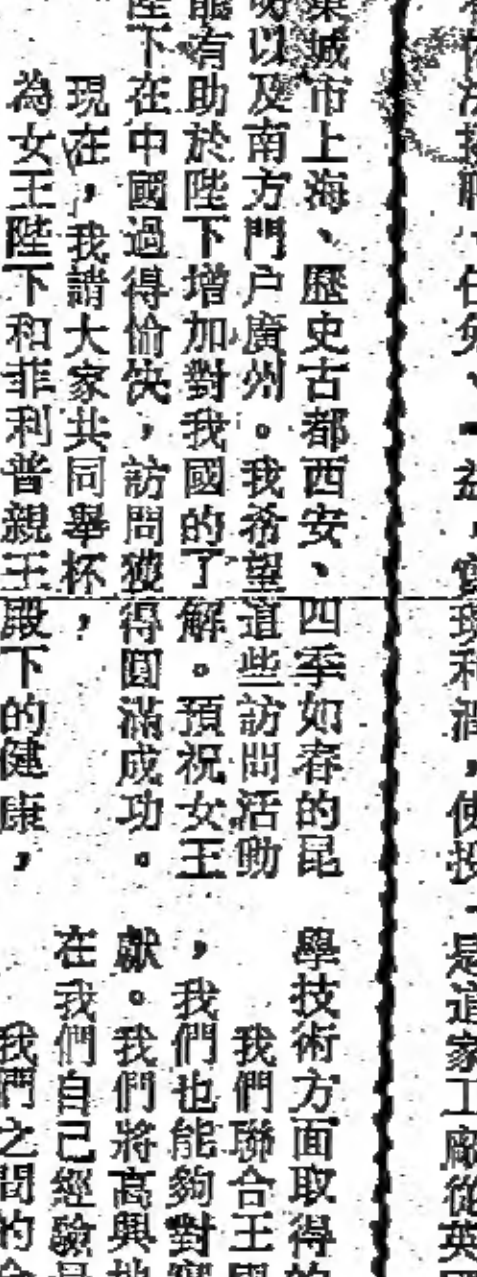 法招聘、任免、
益，實現利潤，使投
是這家工廠從英
業城市上海、歷史古都西安、四季如春的昆
明以及南方門户廣州。我希望這些訪問活動
能有助於陛下增加對我國的了解。預祝女王
陛下在中國過得愉快，訪問獲得圓滿成功。
現在，我請大家共同舉杯，
為女王陛下和菲利普親王殿下的健康，
學技術方面取得的
我們聯合王國
，我們也能夠對
獻。我們將高興地
在我們自己經驗
我們之間的合